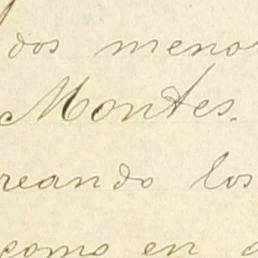 dos menor
Montes.
reando los
como en